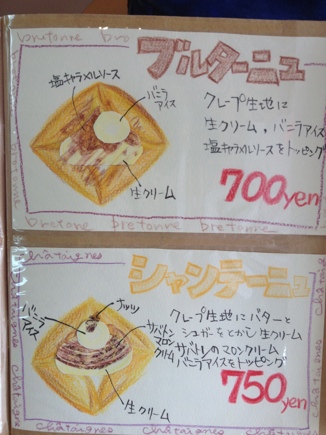 bretonne bro
ブルターニュ
塩キャラメルソース
バニラ
アイス
生クリーム
クレープ生地に
生クリーム,バニラアイス
塩キャラメルソースをトッピング
700yen
bretone bretonne bretonne
bretonne
châtaignes
シャンテーニュ
バニラ
アイス
ナッツ
サバトン
マロン
クリーム
生クリーム
クレープ生地にバターと
シュガーをとかし生クリーム
サバトンのマロンクリーム
バニラアイスをトッピング
750yen
châtaignes
châtaignes
châtaignes châtaignes